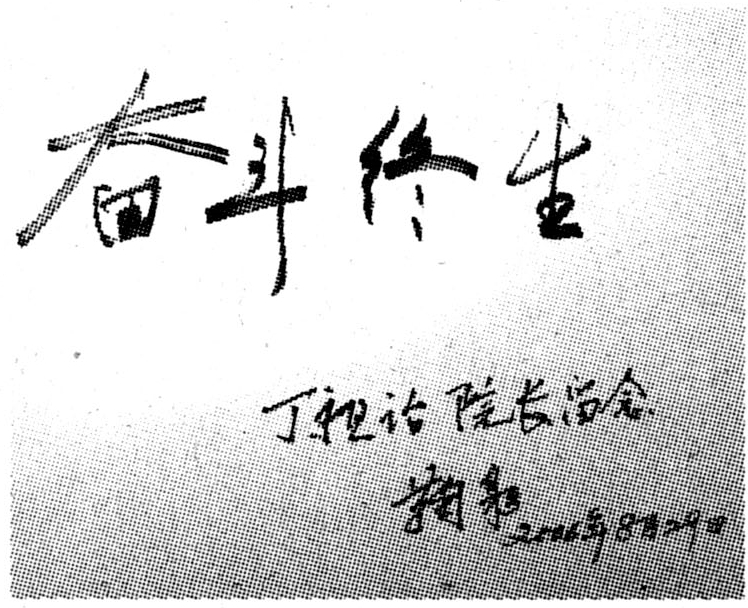 奋斗终生
丁祖诒院长留念
2006年8月29日